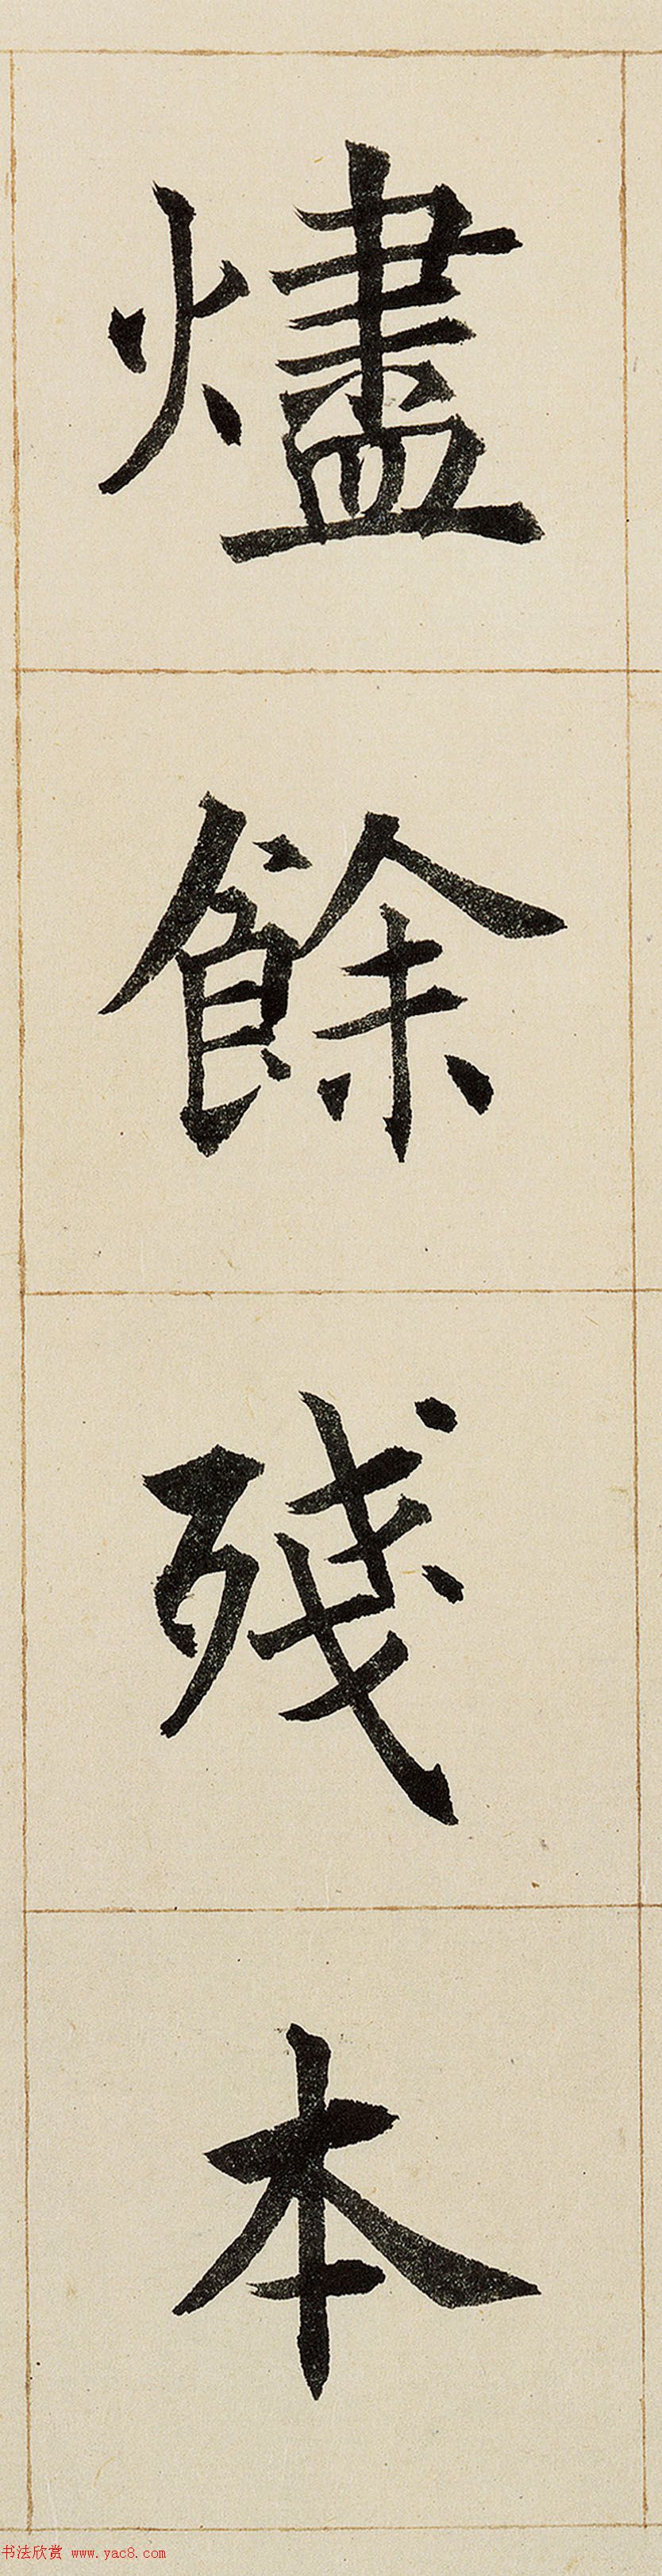 燼餘殘本
书法欣赏 www.yac8.com